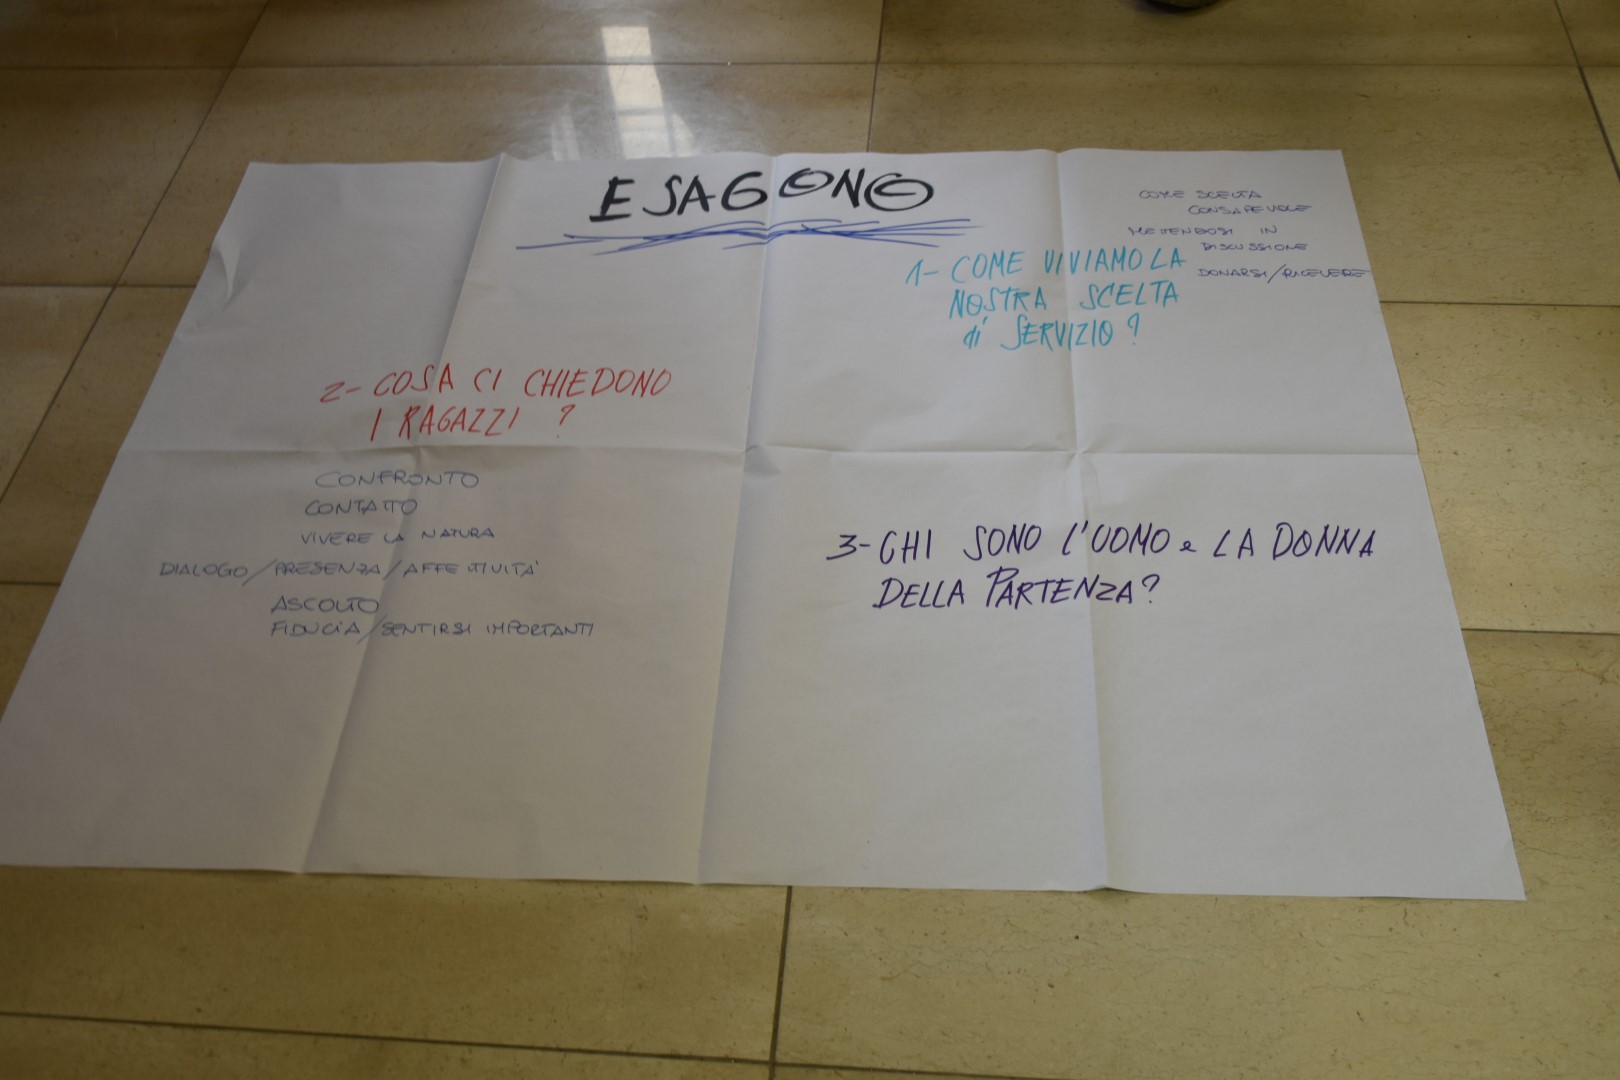 ESAGONO
COME SCELTA
CONSAPEVOLE
METTENDOSI IN
DISCUSSIONE
DONARSI/RICEVERE
1- COME VIVIAMO LA
NOSTRA SCELTA
di SERVIZIO?
2- COSA CI CHIEDONO
I RAGAZZI?
CONFRONTO
CONTATTO
VIVERE LA NATURA
DIALOGO/PRESENZA/AFFETTIVITA'
ASCOLTO
FIDUCIA/SENTIRSI IMPORTANTI
3- CHI SONO L'UOMO e LA DONNA
DELLA PARTENZA?